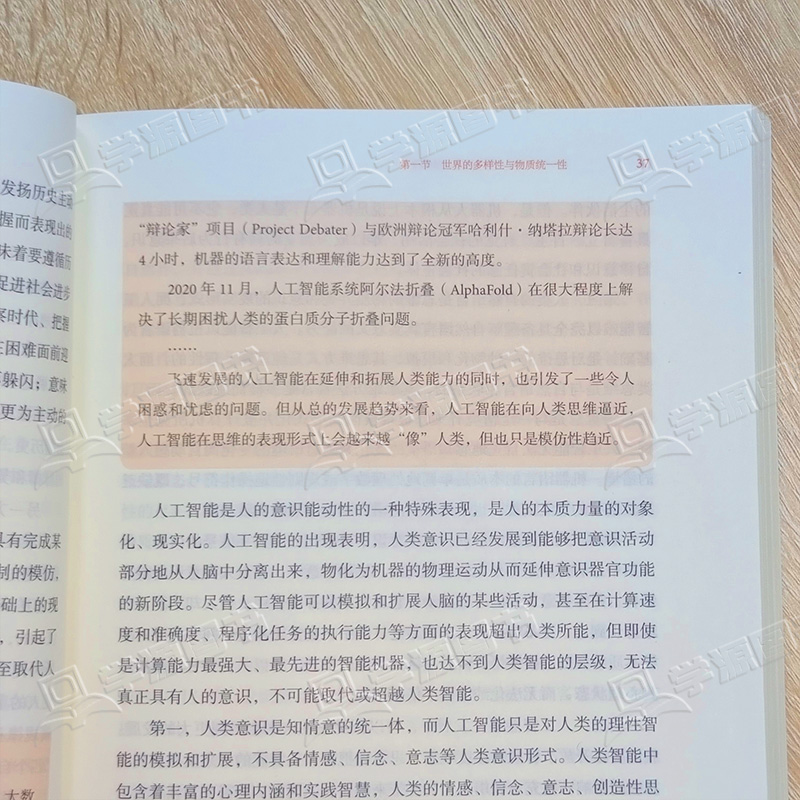 发扬历史主动
握而表现出的
味着要遵循历
促进社会进步
察时代、把握
在困难面前迎
躲闪；意味
更为主动的
具有完成某
制的模仿,
础上的现
，引起了
至取代人
大数
第一节 世界的多样性与物质统一性 37
“辩论家”项目（Project Debater）与欧洲辩论冠军哈利什·纳塔拉辩论长达
4 小时，机器的语言表达和理解能力达到了全新的高度。
2020 年 11 月，人工智能系统阿尔法折叠（AlphaFold）在很大程度上解
决了长期困扰人类的蛋白质分子折叠问题。
……
飞速发展的人工智能在延伸和拓展人类能力的同时，也引发了一些令人
困惑和忧虑的问题。但从总的发展趋势来看，人工智能在向人类思维逼近，
人工智能在思维的表现形式上会越来越“像”人类，但也只是模仿性趋近。
人工智能是人的意识能动性的一种特殊表现，是人的本质力量的对象
化、现实化。人工智能的出现表明，人类意识已经发展到能够把意识活动
部分地从人脑中分离出来，物化为机器的物理运动从而延伸意识器官功能
的新阶段。尽管人工智能可以模拟和扩展人脑的某些活动，甚至在计算速
度和准确度、程序化任务的执行能力等方面的表现超出人类所能，但即使
是计算能力最强大、最先进的智能机器，也达不到人类智能的层级，无法
真正具有人的意识，不可能取代或超越人类智能。
第一，人类意识是知情意的统一体，而人工智能只是对人类的理性智
能的模拟和扩展，不具备情感、信念、意志等人类意识形式。人类智能中
包含着丰富的心理内涵和实践智慧，人类的情感、信念、意志、创造性思
学源图书
学源图书
学源图书
学源图书
学源图书
学源图书
学源图书
学源图书
学源图书